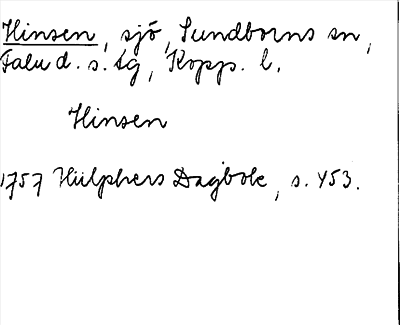 Hinsen, sjö, Sundborns sn,
Falu d. s. tg, Kopp. l.
Hinsen
1757 Hülphers Dagbok, s. 453.